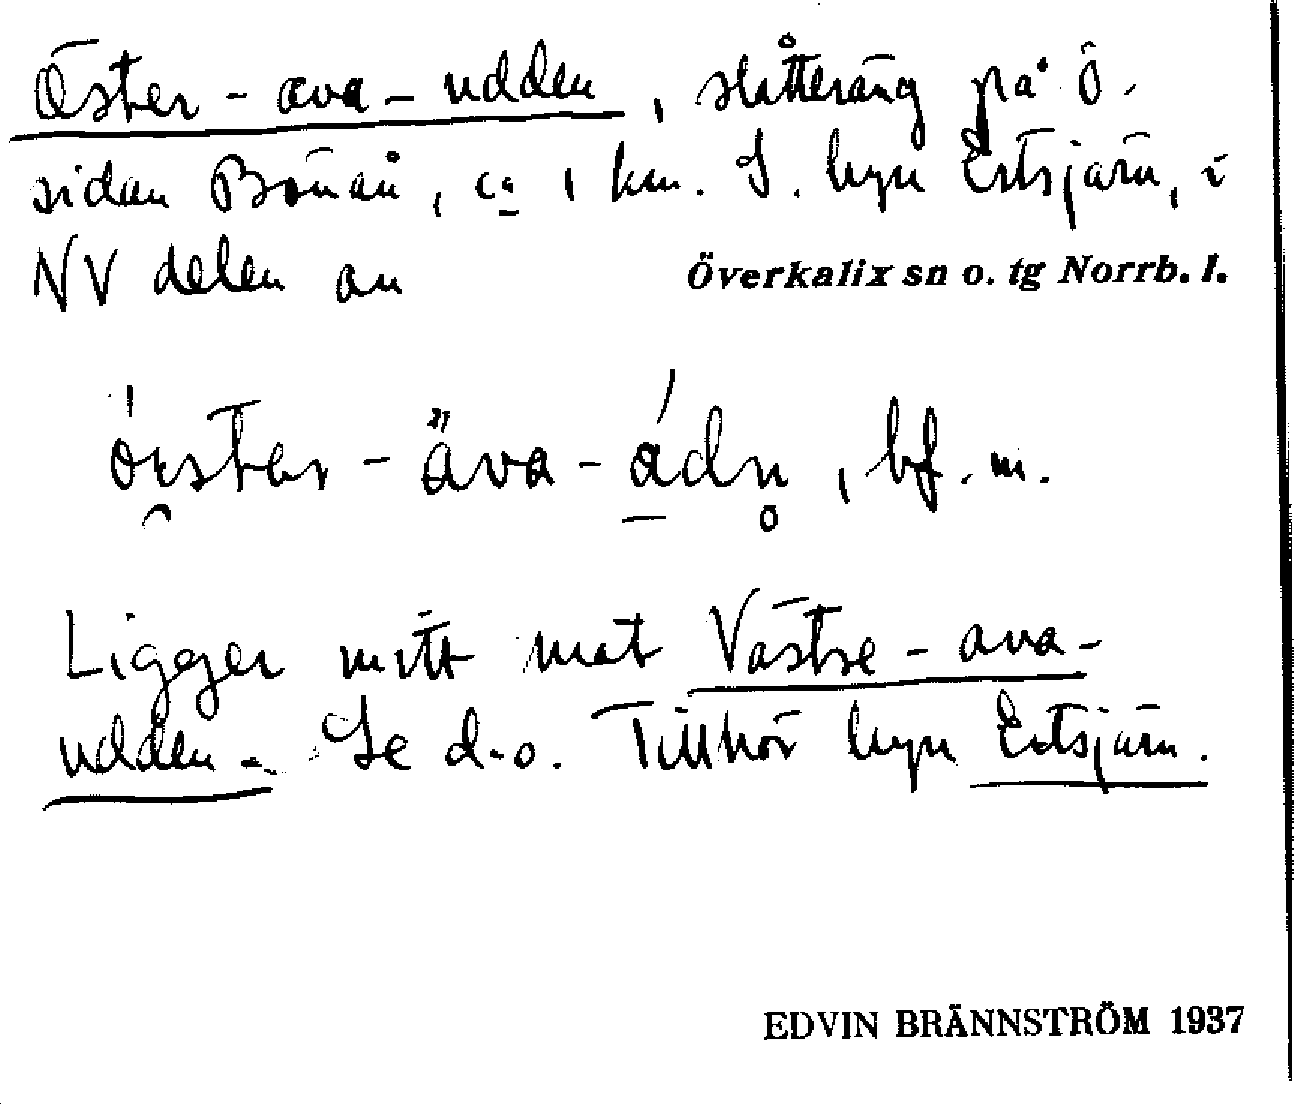 Öster-ava-udden, slåtteräng på ö.
sidan Bönån, ca 1 km. S. byn Ertsjärn, i
NV delen av Överkalix sn o. tg Norrb. l.
-äva-ádn̥, bf. m.
Ligger mitt mot Västre-ava-
udden. Se d-o. Tillhör byn Ertsjärn.
EDVIN BRÄNNSTRÖM 1937